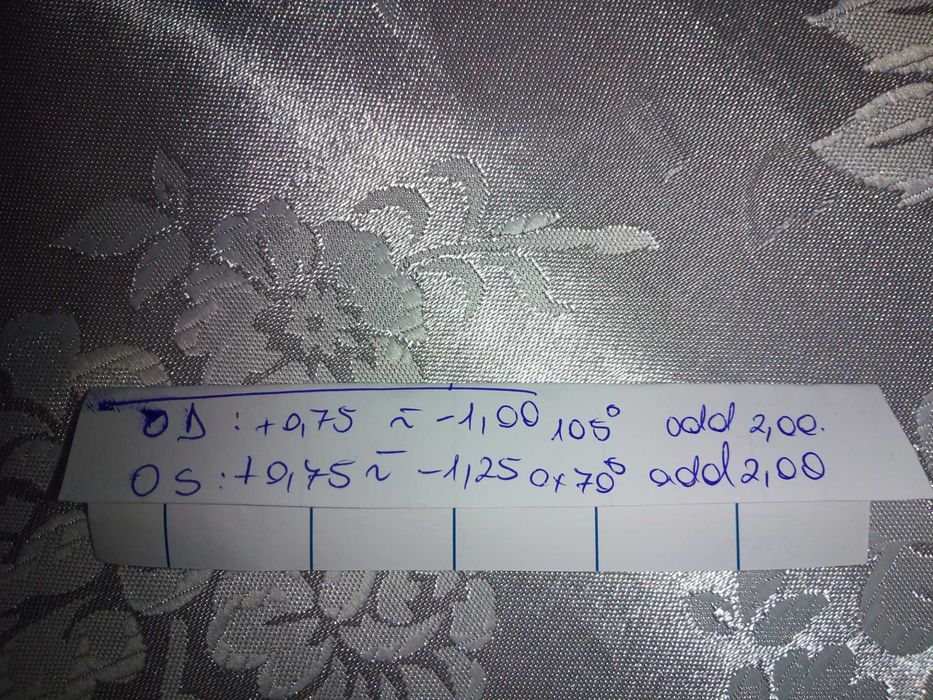 OD : +0,75 ≂ -1,00 105° add 2,00.
OS : +0,75 ≂ -1,25 ax 70° add 2,00